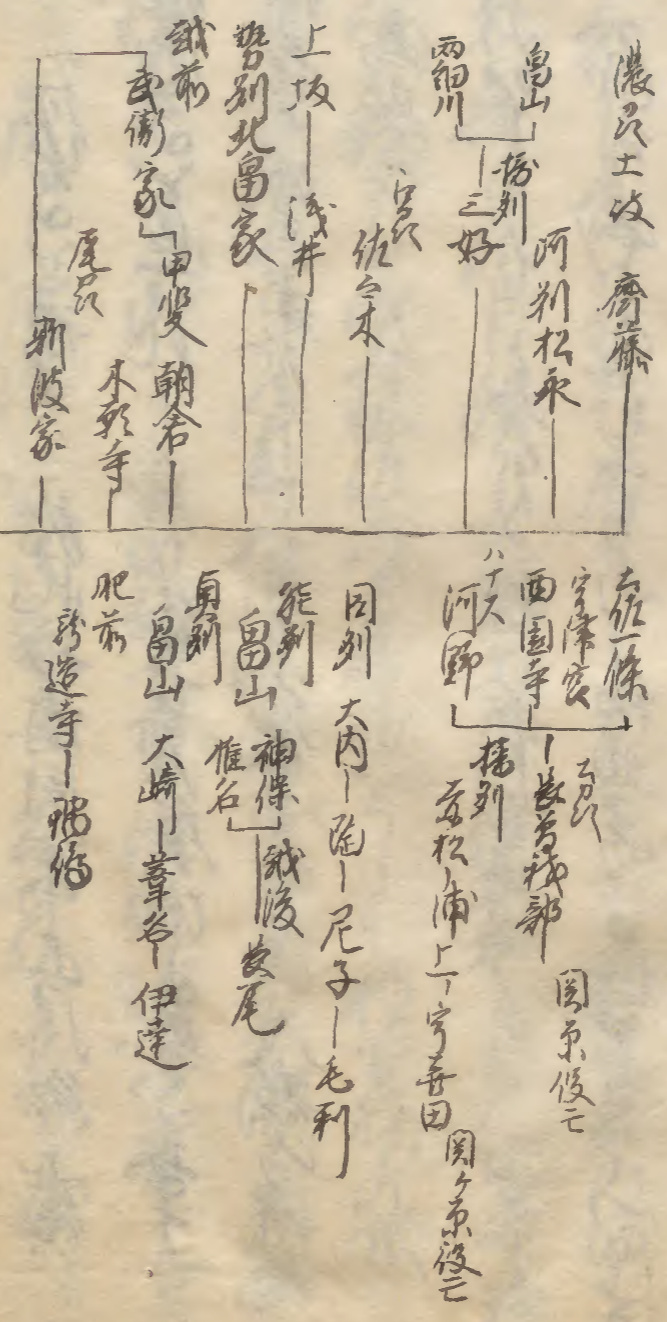 濃刕土岐 齊藤
畠山
両細川
摂州
三好
阿州松永
江刕
佐々木
上坂 浅井
勢州北畠家
越前
武衛家 甲斐 朝倉
尾刕
本願寺
斯波家
土佐一條
宇津宮
西園寺
八十六
河野
土刕
長曽我部
関原役亡
播州
赤松 浦上 宇喜田
関ヶ原役亡
同州 大内 陶 尼子 毛利
能州
畠山 神保
椎名
越後
長尾
奥州
畠山 大崎 葦名 伊達
肥前
龍造寺 鍋嶋